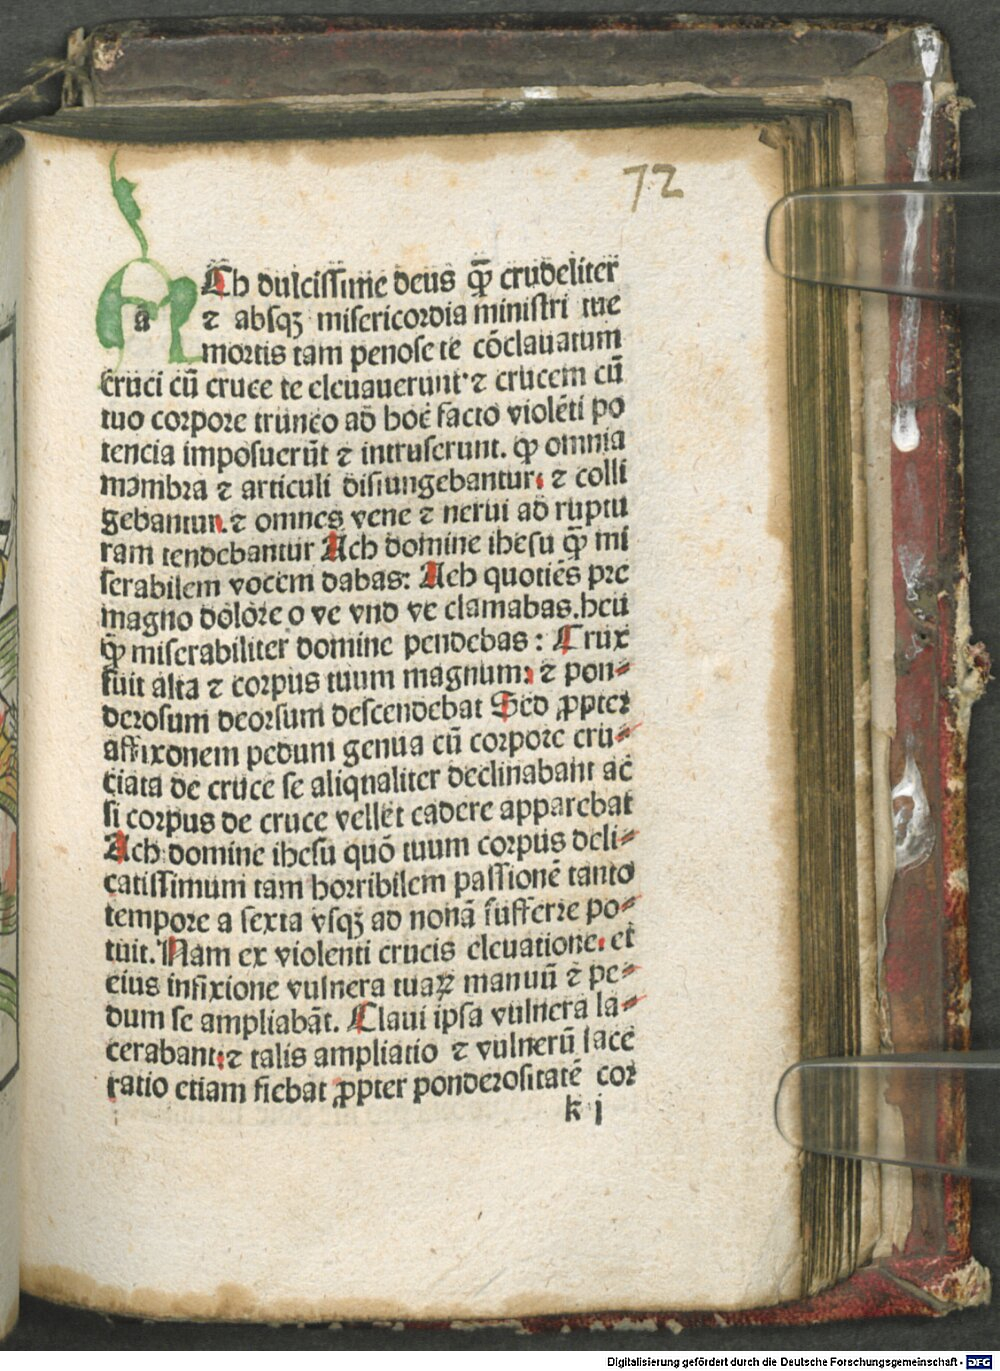 72
Ch dulcissime deus qͫ crudeliter
a ⁊ absqꝫ misericordia ministri tue
mortis tam penose te cōclauatum
cruci cū cruce te eleuauerunt·⁊ crucem cū
tuo corpore trunco ad hoc facto violēti po
tencia imposuerūt ⁊ intruserunt. ꝙ omnia
mombra ⁊ articuli disiungebantur: ⁊ colli
gebantur.⁊ omnes vene ⁊ nerui ad ruptu
ram tendebantur Ach domine ihesu ꝙ̄ mi
serabilem vocem dabas: Ach quotiēs pre
magno dolore o ve vnd ve clamabas.heu
ꝙ̄ miserabiliter domine pendebas: Crux
fuit alta ⁊ corpus tuum magnum: ⁊ pon-
derosum deorsum descendebat Sed ꝓpter
affixonem pedum genua cū corpore cru-
ciata de cruce se aliqualiter declinabant ac
si corpus de cruce vellet cadere apparebat
Ach domine ihesu quō tuum corpus deli-
catissimum tam horribilem passionē tanto
tempore a sexta vsqꝫ ad nonā sufferre po-
tuit. Nam ex violenti crucis eleuatione. et
eius infixione vulnera tuaꝝ manuū ⁊ pe-
dum se ampliabāt. Claui ipsa vulnera la-
cerabant:⁊ talis ampliatio ⁊ vulnerū lace
ratio etiam fiebat ꝓpter ponderositatē cor
k j
Digitalisierung gefördert durch die Deutsche Forschungsgemeinschaft - DFG